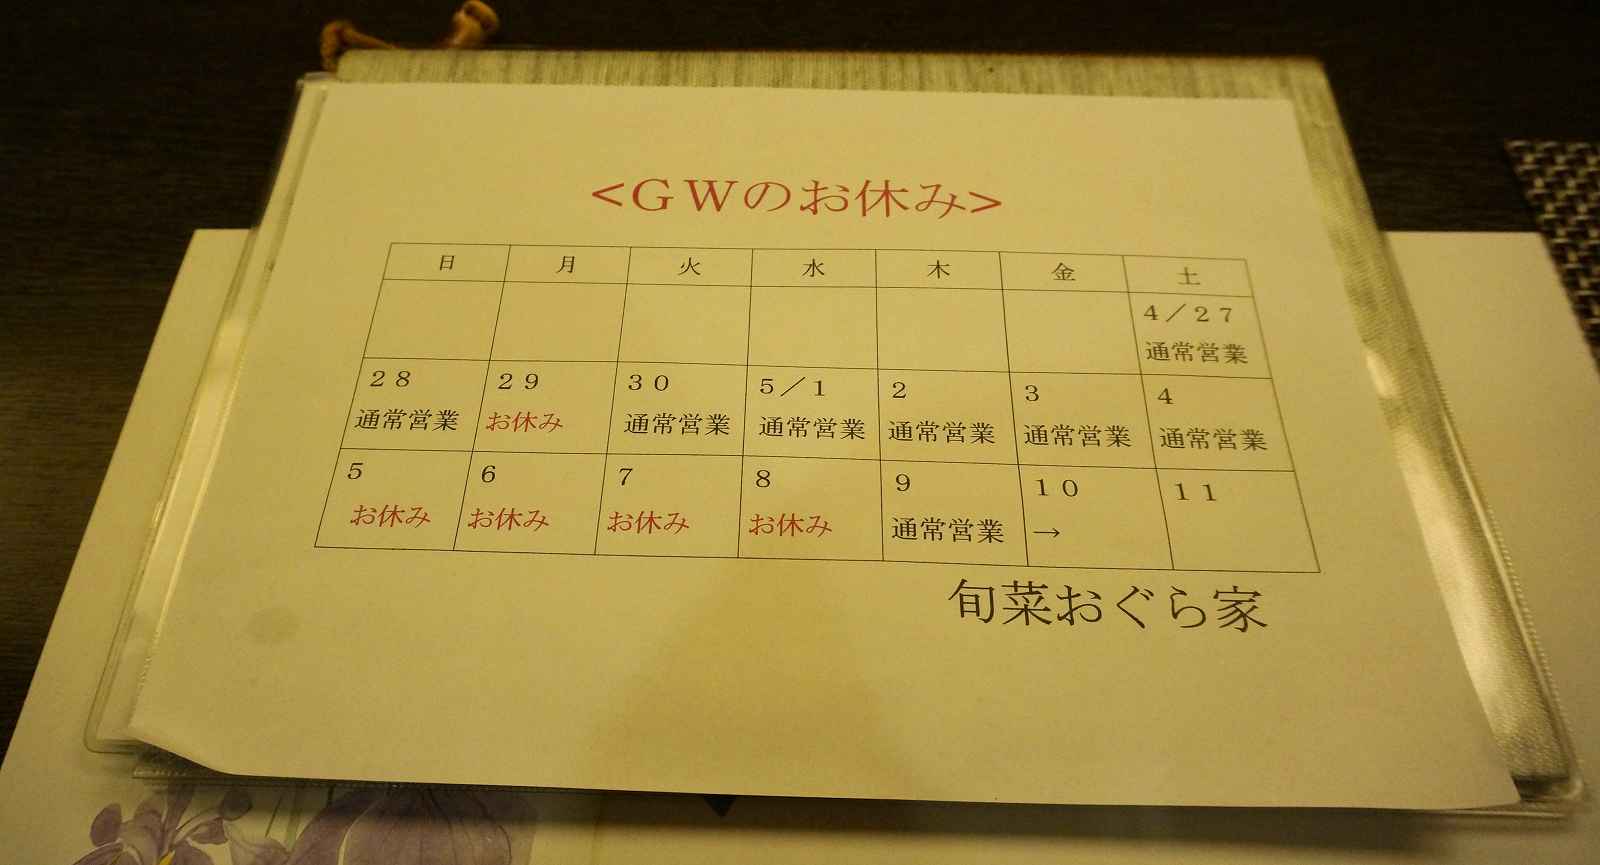 <ＧＷのお休み>
日 月 火 水 木 金 土
４／２７
通常営業
２８ ２９ ３０ ５／１ ２ ３ ４
通常営業 お休み 通常営業 通常営業 通常営業 通常営業 通常営業
５ ６ ７ ８ ９ １０ １１
お休み お休み お休み お休み 通常営業 →
旬菜おぐら家